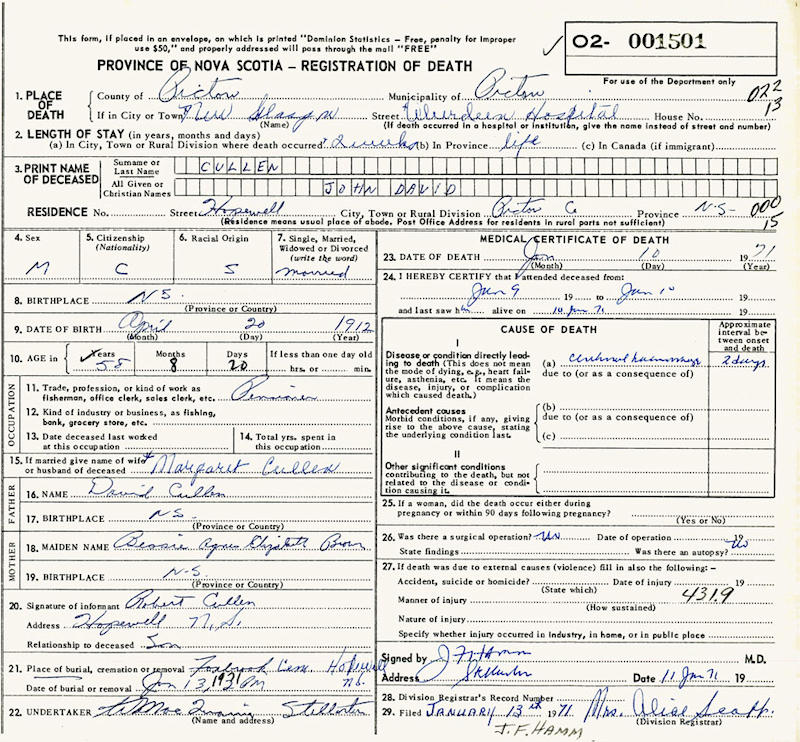 This form, if placed in an envelope, on which is printed "Dominion Statistics – Free, penalty for improper
use $50," and properly addressed will pass through the mail "FREE"
✓ 02- 001501
PROVINCE OF NOVA SCOTIA – REGISTRATION OF DEATH
For use of the Department only
1. PLACE OF DEATH County of Pictou Municipality of Pictou 022
If in City or Town New Glasgow Street Aberdeen Hospital House No. 13
(Name) (If death occurred in a hospital or institution, give the name instead of street and number)
2. LENGTH OF STAY (in years, months and days)
(a) In City, Town or Rural Division where death occurred 2 weeks (b) In Province life (c) In Canada (if immigrant)
3. PRINT NAME OF DECEASED Surname or Last Name CULLEN
All Given or Christian Names JOHN DAVID
RESIDENCE No. Street Hopewell City, Town or Rural Division Pictou Co Province N-S- 000
(Residence means usual place of abode. Post Office Address for residents in rural parts not sufficient) 15
4. Sex M
5. Citizenship (Nationality) C
6. Racial Origin S
7. Single, Married, Widowed or Divorced (write the word) married
8. BIRTHPLACE NS.
(Province or Country)
9. DATE OF BIRTH April 20 1912
(Month) (Day) (Year)
10. AGE in Years 58 Months 8 Days 20 If less than one day old hrs. or min.
OCCUPATION
11. Trade, profession, or kind of work as
fisherman, office clerk, sales clerk, etc. Pensioner
12. Kind of industry or business, as fishing,
bank, grocery store, etc.
13. Date deceased last worked
at this occupation
14. Total yrs. spent in
this occupation
15. If married give name of wife
or husband of deceased Margaret Cullen
FATHER
16. NAME David Cullen
17. BIRTHPLACE NS.
(Province or Country)
MOTHER
18. MAIDEN NAME Bessie Agnes Elizabeth Brown
19. BIRTHPLACE N-S
(Province or Country)
20. Signature of informant Robert Cullen
Address Hopewell N.S.
Relationship to deceased Son
21. Place of burial, cremation or removal Cem. Hopewell
Date of burial or removal Jan 13, 1931 PM NS.
22. UNDERTAKER Stellarton
(Name and address)
MEDICAL CERTIFICATE OF DEATH
23. DATE OF DEATH Jan 10 1971
(Month) (Day) (Year)
24. I HEREBY CERTIFY that I attended deceased from:
Jan 9 19 to Jan 10 19
and last saw h alive on 10 Jan 71 19
CAUSE OF DEATH
Approximate interval between onset and death
I
Disease or condition directly leading to death (This does not mean the mode of dying, e.g., heart failure, asthenia, etc. It means the disease, injury, or complication which caused death.)
(a) cerebral haemorrhage 2 days
due to (or as a consequence of)
Antecedent causes
Morbid conditions, if any, giving rise to the above cause, stating the underlying condition last.
(b)
due to (or as a consequence of)
(c)
II
Other significant conditions
contributing to the death, but not related to the disease or condition causing it.
25. If a woman, did the death occur either during
pregnancy or within 90 days following pregnancy?
(Yes or No)
26. Was there a surgical operation? No Date of operation 19
State findings Was there an autopsy? No
27. If death was due to external causes (violence) fill in also the following: –
Accident, suicide or homicide? Date of injury 19
(State which)
Manner of injury 431.9
(How sustained)
Nature of injury
Specify whether injury occurred in industry, in home, or in public place
Signed by J F Hamm M.D.
Address Stellarton Date 11 Jan 71
28. Division Registrar's Record Number
29. Filed JANUARY 13th 1971 Mrs. Alice Scapp.
(Division Registrar)
J.F. HAMM